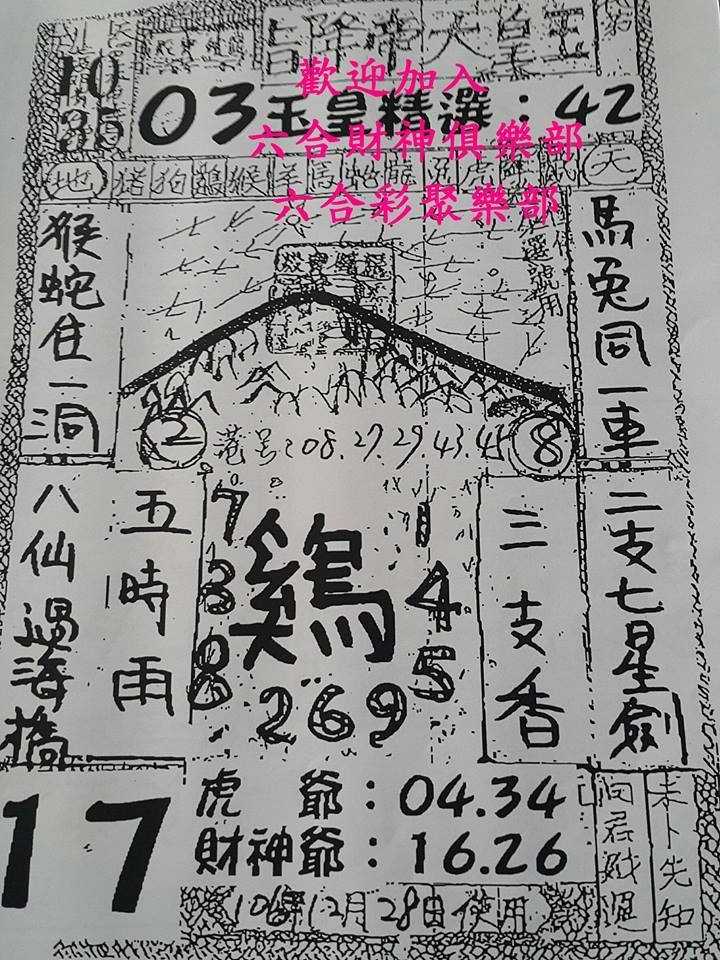 玉皇大帝降旨
10
35
03玉皇精選：42
歡迎加入
六合財神俱樂部
六合彩聚樂部
天
虎兔龍蛇馬羊猴鷄狗猪
地
選號用
馬兔同一車
猴蛇住一洞
2
港号：08.27.29.43.45
8
二支七星劍
三支香
鷄
7
3
8
269
1
4
5
五時雨
八仙過海橋
17
虎爺：04.34
財神爺：16.26
未卜先知
106年12月28日使用